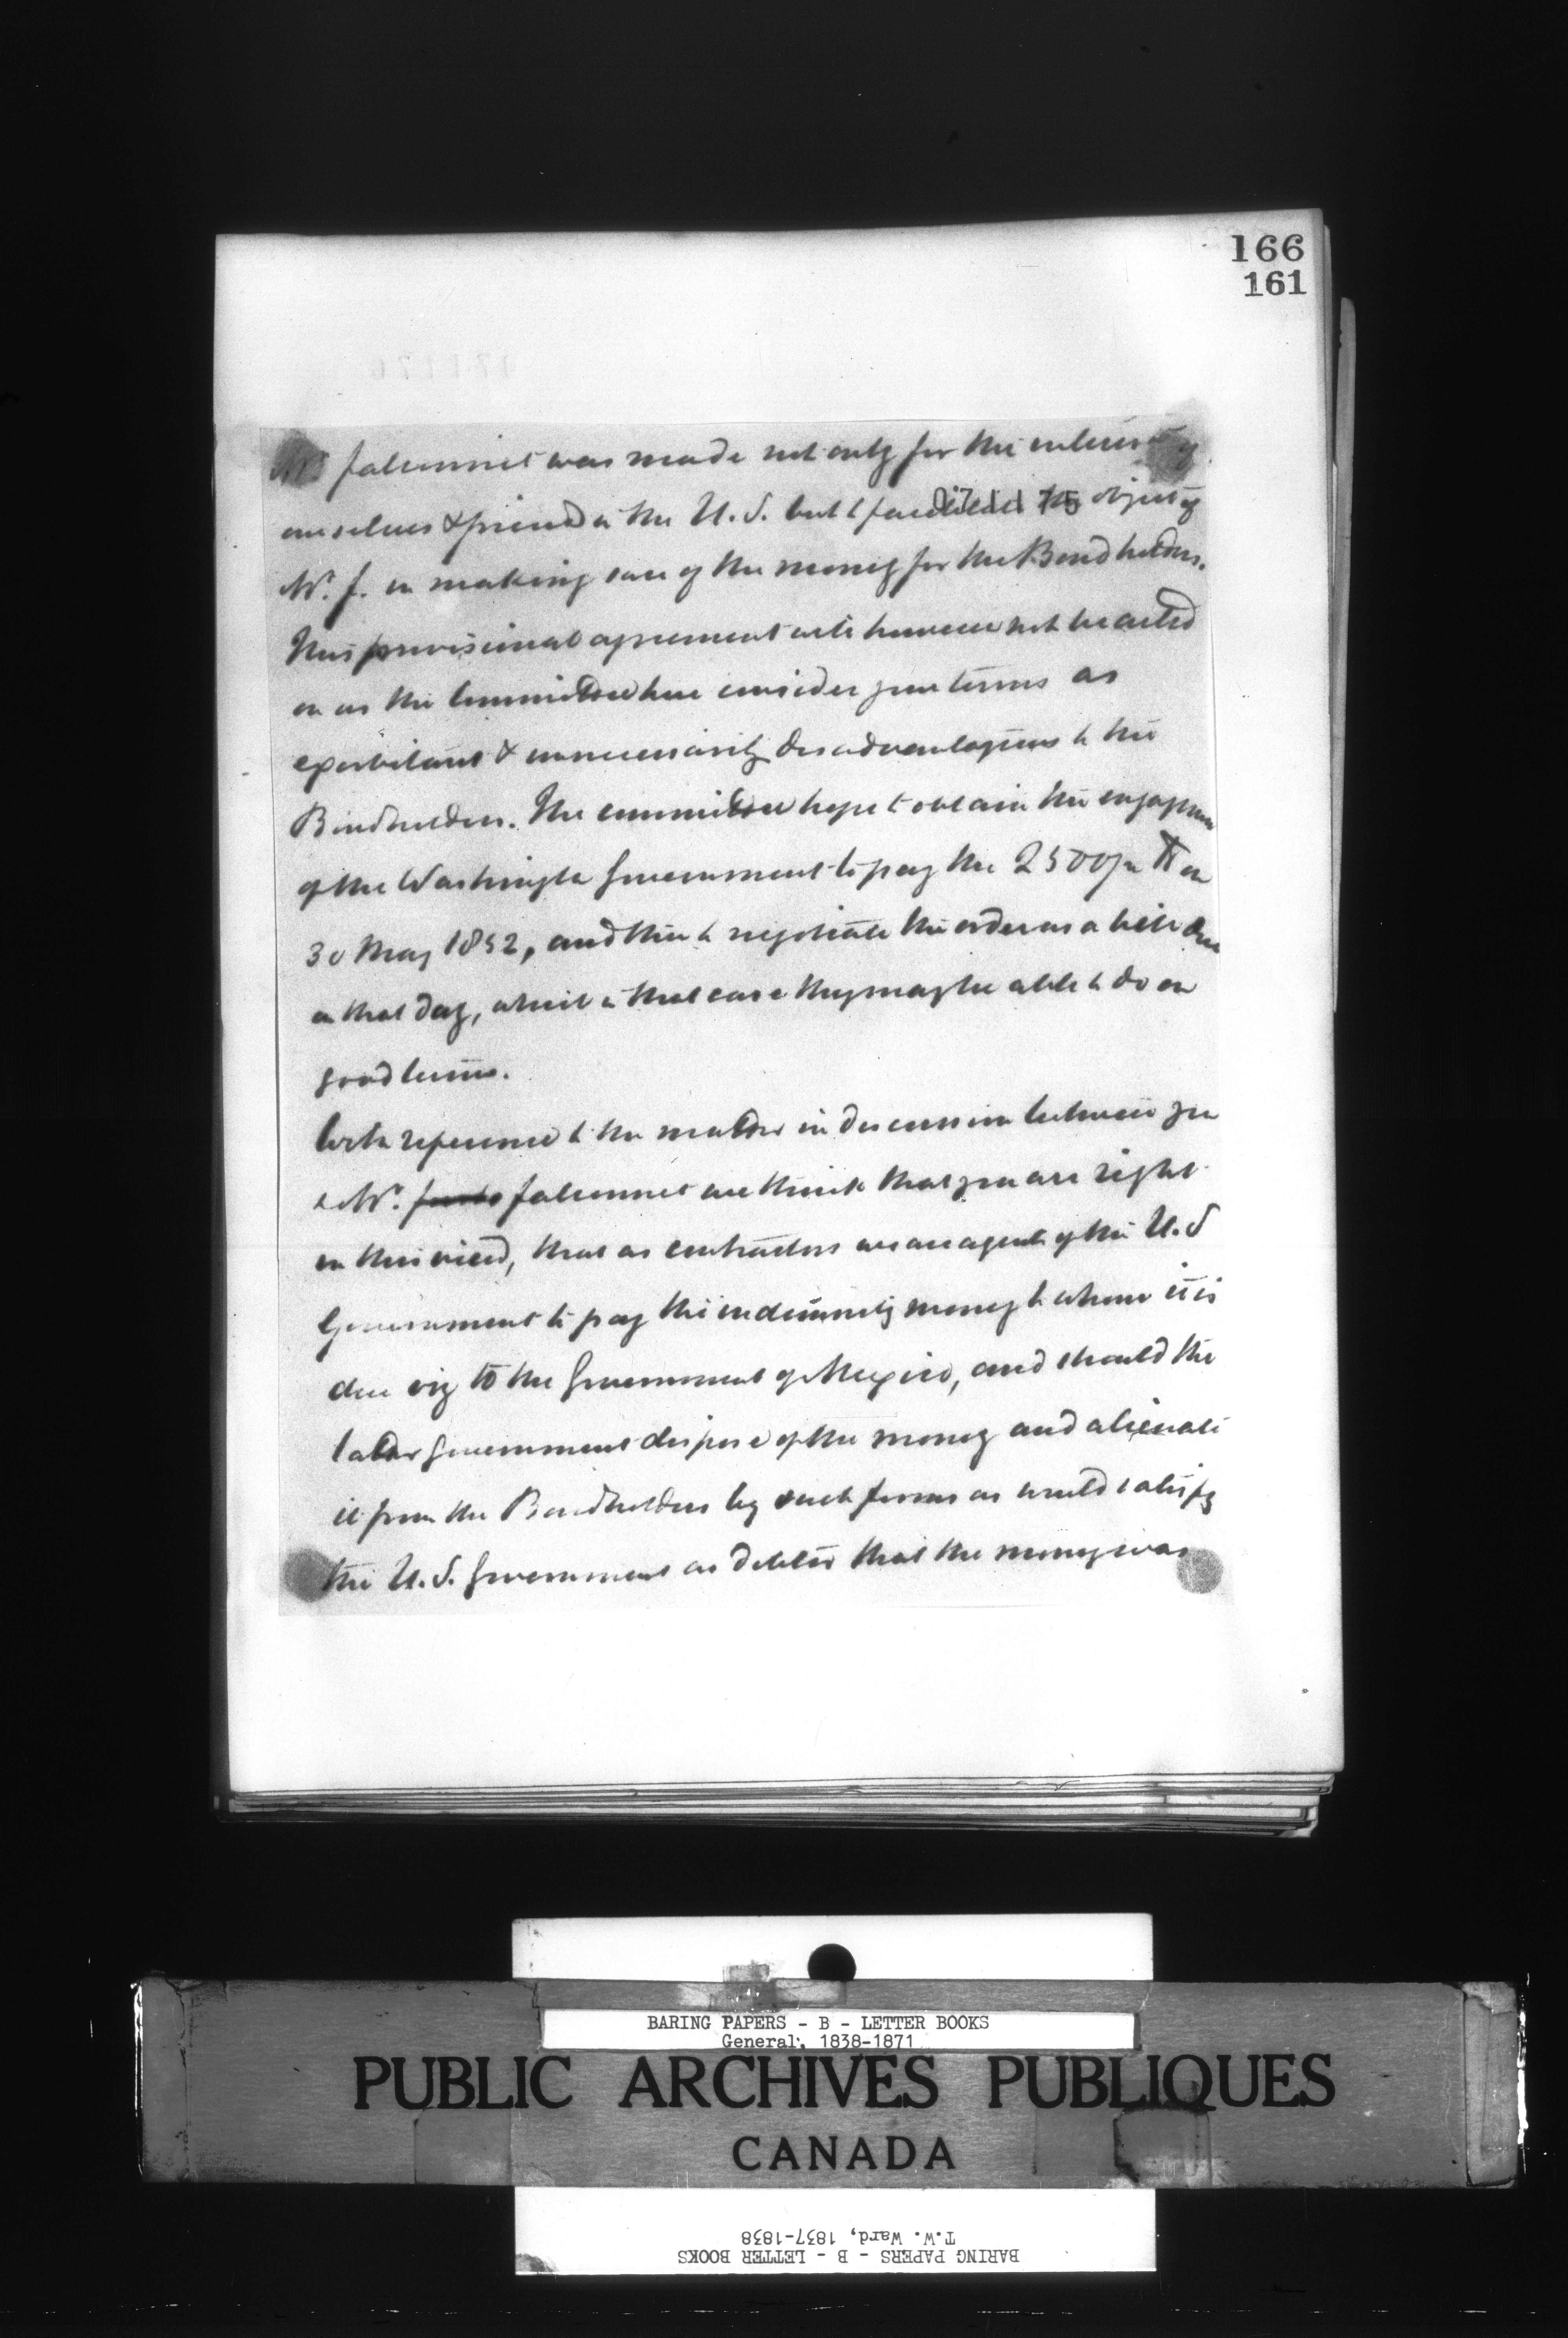 166
161
Mr. Falconnet was made not only for the interest of
ourselves & friends in the U.S. but to facilitate the object of
017117
Mr. F. in making sure of the money for the Bondholders.
This provisional agreement will however not be acted
on as the Committee here consider your terms as
exorbitant & unnecessarily disadvantageous to the
Bondholders. The committee hope to obtain the engagement
of the Washington Government to pay the 2500/m $ on
30 May 1852, and then to negotiate the order as a bill due
on that day, which in that case they may be able to do on
good terms.
With reference to the matter in discussion between you
& Mr. Falconnet we think that you are right
in this view, that as contractors we are agents of the U.S
Government to pay the indemnity money to whom it is
due viz to the Government of Mexico, and should the
latter Government dispose of the money and alienate
it from the Bondholders by such forms as would satisfy
the U.S. Government as debtor that the money was
BARING PAPERS - B - LETTER BOOKS
General, 1838-1871
PUBLIC ARCHIVES PUBLIQUES
CANADA
T.W. Ward, 1837-1838
BARING PAPERS - B - LETTER BOOKS